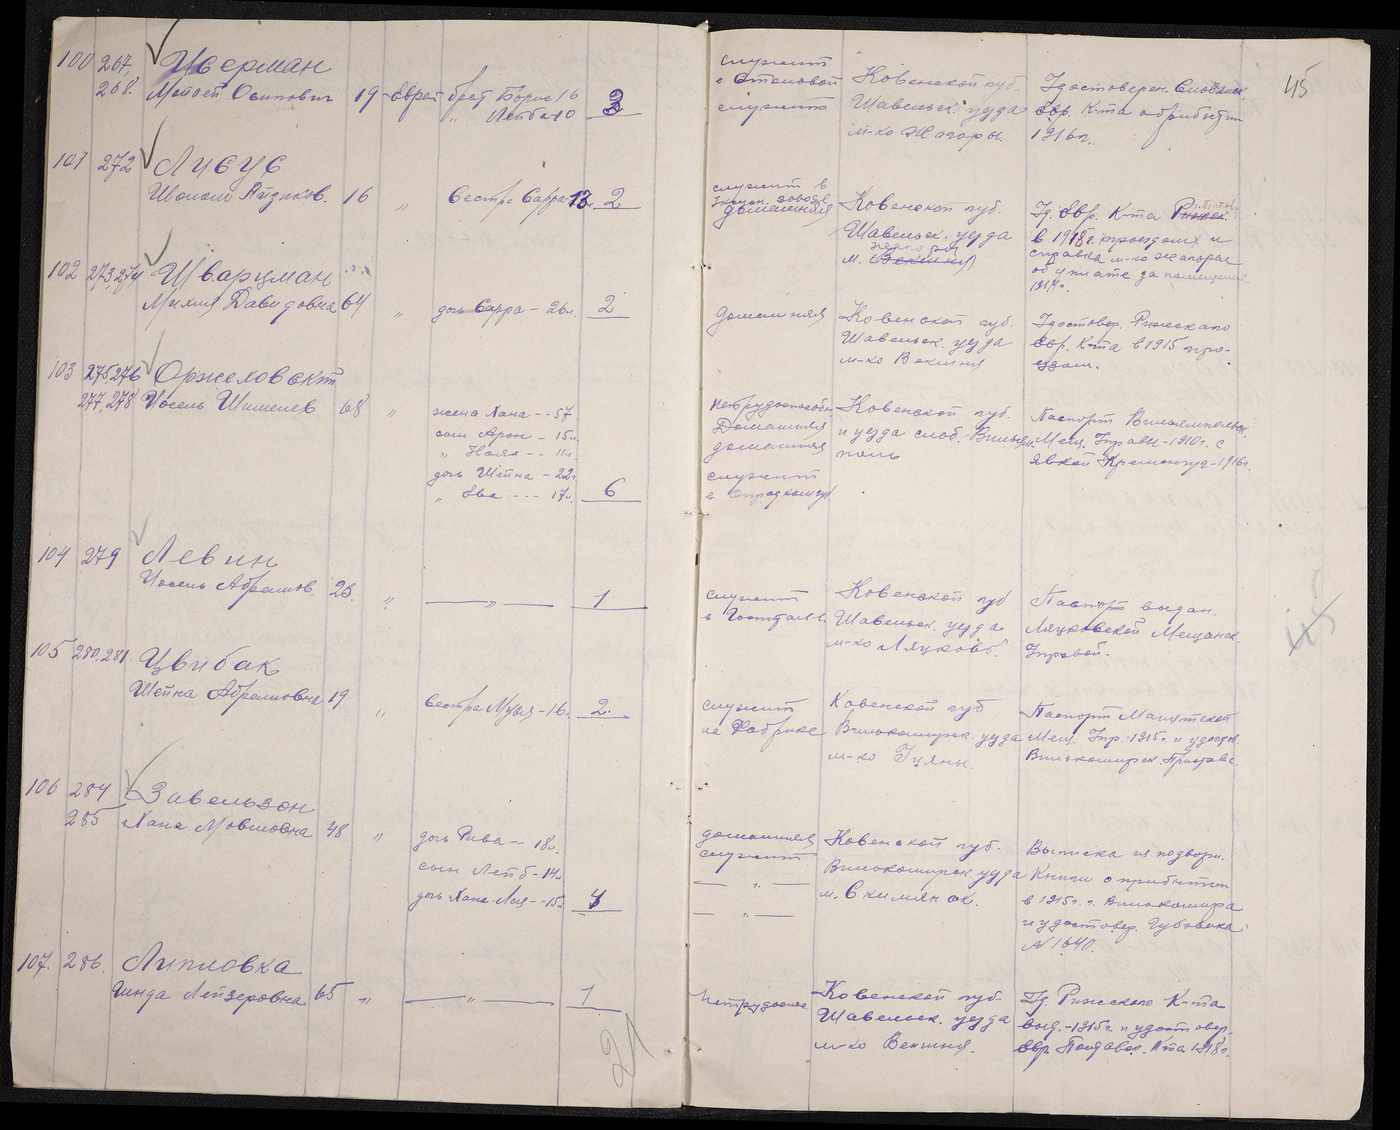 45
100 267, Цверман служит
268. Мовсей Осипович 19 - Еврей брат Борис 16 3 в столовой Ковенской губ. Удостоверен.
" Лейба 10 служит Шавельск. уезда Евр. К-та о прибытии
м-ко Жагоры. 1916 г.
101 272 служит в
Шолом Айзиков. 16 " Сестра Сарра 13. 2 домашняя Ковенской губ. Уд. Евр. К-та
Шавельск. уезда в 1918 г. проездом и
м. справка м-ко Жагоры
об уплате за
1917 г.
102 273, 274 Шварцман
Михля Давидовна 64 " дочь Сарра - 26 л. 2 домашняя Ковенской губ. Удостовер. Рижского
Шавельск. уезда Евр. К-та в 1915 про-
м-ко Векшня ездом.
103 275 276 Оржеловский
277, 278 Иосель Шимелев 68 " жена Хана - - 57 нетрудоспособн. Ковенской губ. Паспорт
сын Арон - 15 л. Домашняя и уезда слоб. Мещ. Управы - 1910 г. с
" - - 11 л. домашняя поль явкой Кременчуга - 1916 г.
дочь Шейна - 22 г. служит
" Ева - - - 17 л. 6 в
104 279 Левин
Иосель Абрамов. 23. " — " — 1 служит Ковенской губ Паспорт выдан.
в Госпитале Шавельск. уезда Ляцковской Мещанск.
м-ко Ляцково. Управой.
45
105 280, 281. Цвибак
Шейна Абрамовна 19 " Сестра Муся - 16. 2. служит Ковенской губ Паспорт
на Фабрике Вилькомирск. уезда Мещ. Упр. - 1915 г. и удостов.
м-ко Уцяны. Вилькомирск. Пристава
106 284 Завельзон
285 Хана Мовшовна 48 " дочь Рива - - 18 л. домашняя Ковенской губ. Выписка из подворн.
служит
сын Лейб - 14 л. — " — Вилькомирск. уезда Книги о прибытии
дочь Хана-Лея - - 15 л. 4 — " — м. в 1915 г. г. Вилькомира
и удостовер.
№ 1640.
107. 286. Липловка
Гинда Лейзеровна 65 " — " — 1 Ковенской губ. Уд. Рижского К-та
Шавельск. уезда выд. - 1915 г. и удостовер.
м-ко Векшня. Евр. К-та 1918 г.
21